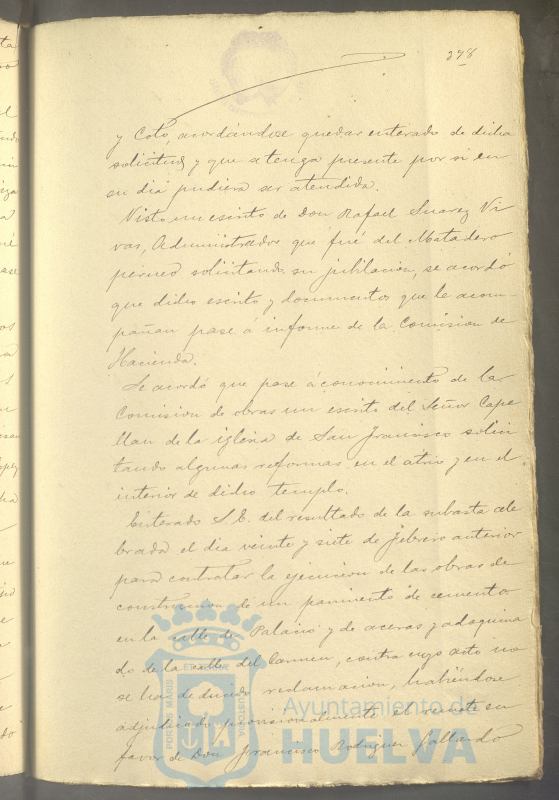 278
y Coto, acordándose quedar enterado de dicha
solicitud y que a tenga presente por si en
su dia pudiera ser atendida.
Visto un escrito de Don Rafael Suarez Vi
vas, Administrador que fué del Matadero
solicitando su jubilacion, se acordó
que dicho escrito y documentos que le acom-
pañan pase á informe de la Comision de
Hacienda.
Se acordó que pase á conocimiento de la
Comision de obras un escrito del Señor Cape
llan de la iglesia de San Francisco solici
tando algunas reformas en el atrio y en el
interior de dicho templo.
Enterado S. E. del resultado de la subasta cele
brada el dia veinte y siete de Febrero anterior
para contratar la ejecucion de las obras de
construccion de un pavimento de cemento
en la calle de Palacio y de aceras y adoquina
do de la calle del Carmen, contra cuyo acto no
se ha deducido reclamacion, habiéndose
adjudicado provisionalmente el remate en
favor de Don Francisco Rodriguez Gallardo
Ayuntamiento de
HUELVA
PORTUS MARIS
ET TERRE
CUSTODIA